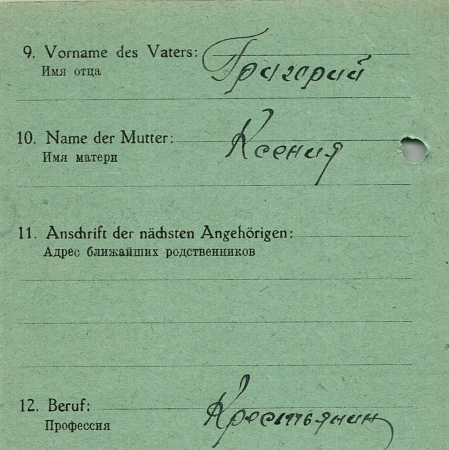 9. Vorname des Vaters: Григорий
Имя отца
10. Name der Mutter: Ксения
Имя матери
11. Anschrift der nächsten Angehörigen:
Адрес ближайших родственников
12. Beruf: Крестьянин
Профессия